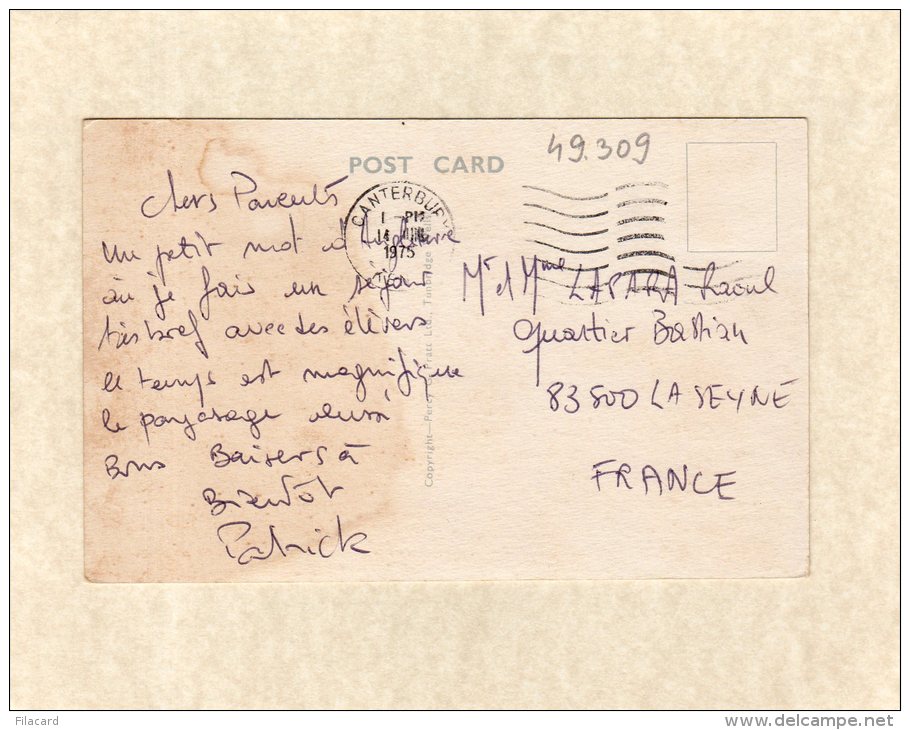 49.309
POST CARD
Chers Parents
Un petit mot d'Angleterre
où je fais un séjour
très bref avec des élèves
le temps est magnifique
le paysage aussi
Bons Baisers à
Bientôt
Patrick
CANTERBURY
1 - PM
14
1975
Copyright—Percy Pratt Ltd., Tunbridge
Mr et Mme LAPARA Raoul
Quartier Bastian
83500 LA SEYNE
FRANCE
Filacard
www.delcampe.net